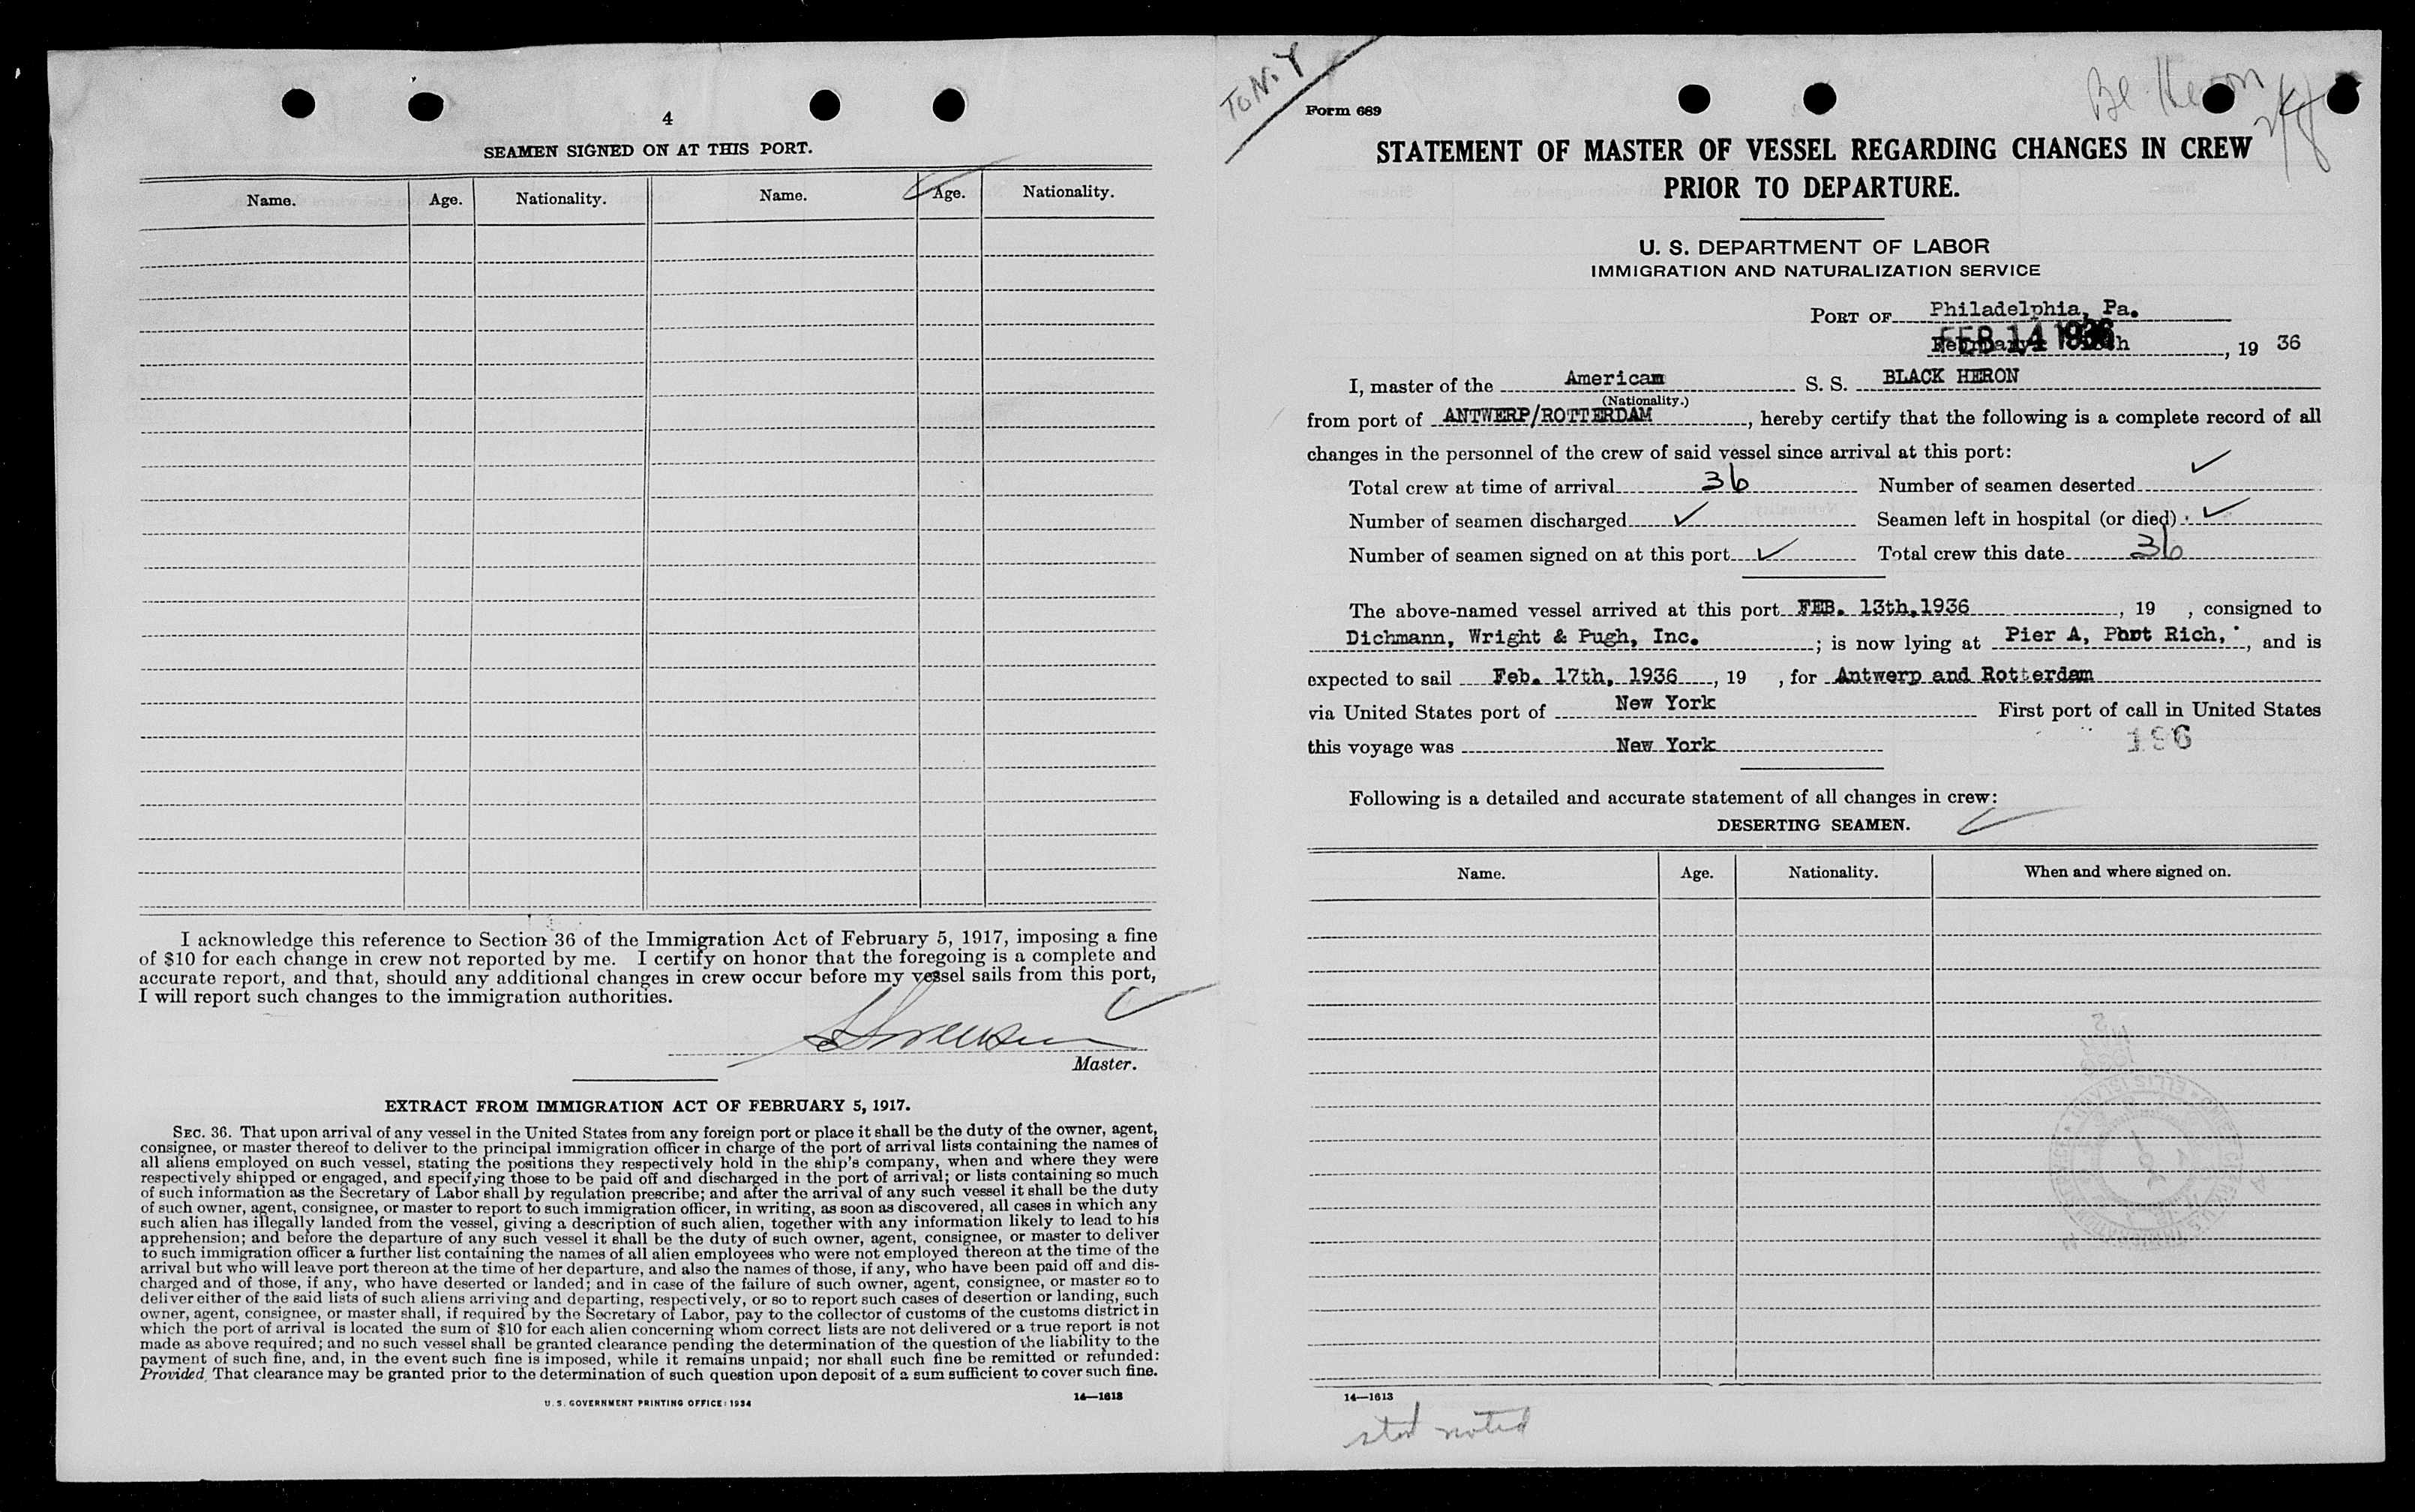 4
SEAMEN SIGNED ON AT THIS PORT.
Name. Age. Nationality. Name. Age. Nationality.
I acknowledge this reference to Section 36 of the Immigration Act of February 5, 1917, imposing a fine
of $10 for each change in crew not reported by me. I certify on honor that the foregoing is a complete and
accurate report, and that, should any additional changes in crew occur before my vessel sails from this port,
I will report such changes to the immigration authorities.
Master.
EXTRACT FROM IMMIGRATION ACT OF FEBRUARY 5, 1917.
SEC. 36. That upon arrival of any vessel in the United States from any foreign port or place it shall be the duty of the owner, agent,
consignee, or master thereof to deliver to the principal immigration officer in charge of the port of arrival lists containing the names of
all aliens employed on such vessel, stating the positions they respectively hold in the ship's company, when and where they were
respectively shipped or engaged, and specifying those to be paid off and discharged in the port of arrival; or lists containing so much
of such information as the Secretary of Labor shall by regulation prescribe; and after the arrival of any such vessel it shall be the duty
of such owner, agent, consignee, or master to report to such immigration officer, in writing, as soon as discovered, all cases in which any
such alien has illegally landed from the vessel, giving a description of such alien, together with any information likely to lead to his
apprehension; and before the departure of any such vessel it shall be the duty of such owner, agent, consignee, or master to deliver
to such immigration officer a further list containing the names of all alien employees who were not employed thereon at the time of the
arrival but who will leave port thereon at the time of her departure, and also the names of those, if any, who have been paid off and dis-
charged and of those, if any, who have deserted or landed; and in case of the failure of such owner, agent, consignee, or master so to
deliver either of the said lists of such aliens arriving and departing, respectively, or so to report such cases of desertion or landing, such
owner, agent, consignee, or master shall, if required by the Secretary of Labor, pay to the collector of customs of the customs district in
which the port of arrival is located the sum of $10 for each alien concerning whom correct lists are not delivered or a true report is not
made as above required; and no such vessel shall be granted clearance pending the determination of the question of the liability to the
payment of such fine, and, in the event such fine is imposed, while it remains unpaid; nor shall such fine be remitted or refunded:
Provided, That clearance may be granted prior to the determination of such question upon deposit of a sum sufficient to cover such fine.
U. S. GOVERNMENT PRINTING OFFICE: 1934
14—1613
To N.Y
Bl. Heron
Form 689
STATEMENT OF MASTER OF VESSEL REGARDING CHANGES IN CREW
PRIOR TO DEPARTURE.
U. S. DEPARTMENT OF LABOR
IMMIGRATION AND NATURALIZATION SERVICE
PORT OF Philadelphia, Pa.
FEB 14 1936 , 19 36
I, master of the American S. S. BLACK HERON
(Nationality.)
from port of ANTWERP/ROTTERDAM, hereby certify that the following is a complete record of all
changes in the personnel of the crew of said vessel since arrival at this port:
Total crew at time of arrival 36 Number of seamen deserted ✓
Number of seamen discharged ✓ Seamen left in hospital (or died) ✓
Number of seamen signed on at this port ✓ Total crew this date 36
The above-named vessel arrived at this port FEB. 13th, 1936, 19 , consigned to
Dichmann, Wright & Pugh, Inc. ; is now lying at Pier A, Port Rich, , and is
expected to sail Feb. 17th, 1936, 19 , for Antwerp and Rotterdam
via United States port of New York First port of call in United States
this voyage was New York
196
Following is a detailed and accurate statement of all changes in crew:
DESERTING SEAMEN.
Name. Age. Nationality. When and where signed on.
14—1613
noted